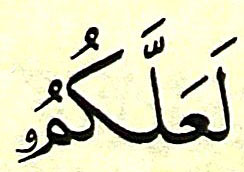 لَعَلَّكُمُۥ